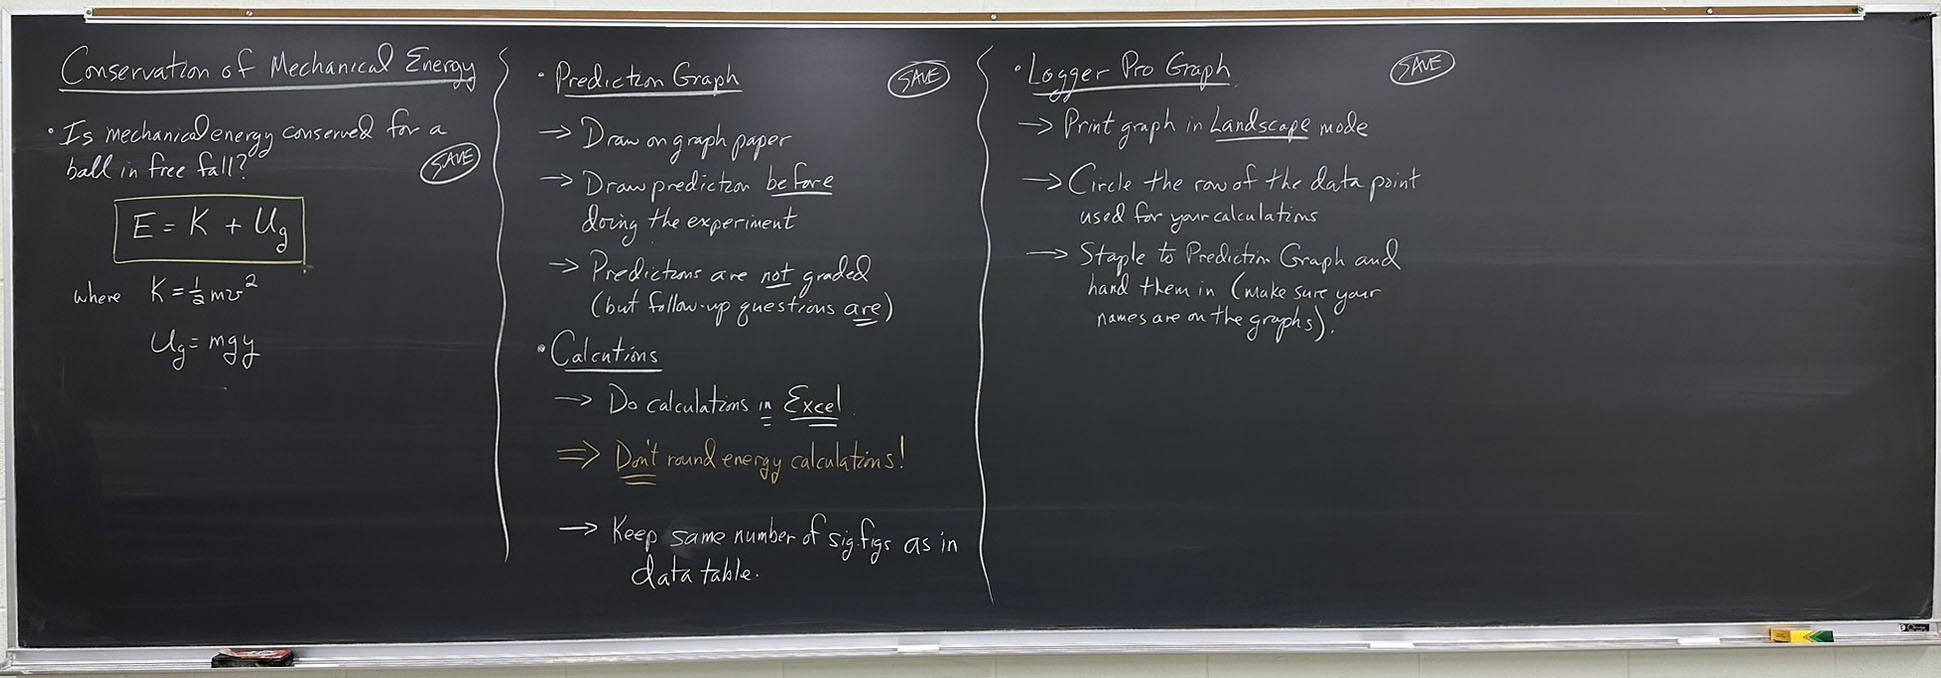 Conservation of Mechanical Energy
• Is mechanical energy conserved for a
ball in free fall?
SAVE
E = K + Ug
where K = ½mv²
Ug = mgy
• Prediction Graph
SAVE
→ Draw on graph paper
→ Draw prediction before
doing the experiment
→ Predictions are not graded
(but follow-up questions are)
• Calcutions
→ Do calculations in Excel
⇒ Don't round energy calculations!
→ Keep same number of sig.figs as in
data table.
• Logger Pro Graph
SAVE
→ Print graph in Landscape mode
→ Circle the row of the data point
used for your calculations
→ Staple to Prediction Graph and
hand them in (make sure your
names are on the graphs).